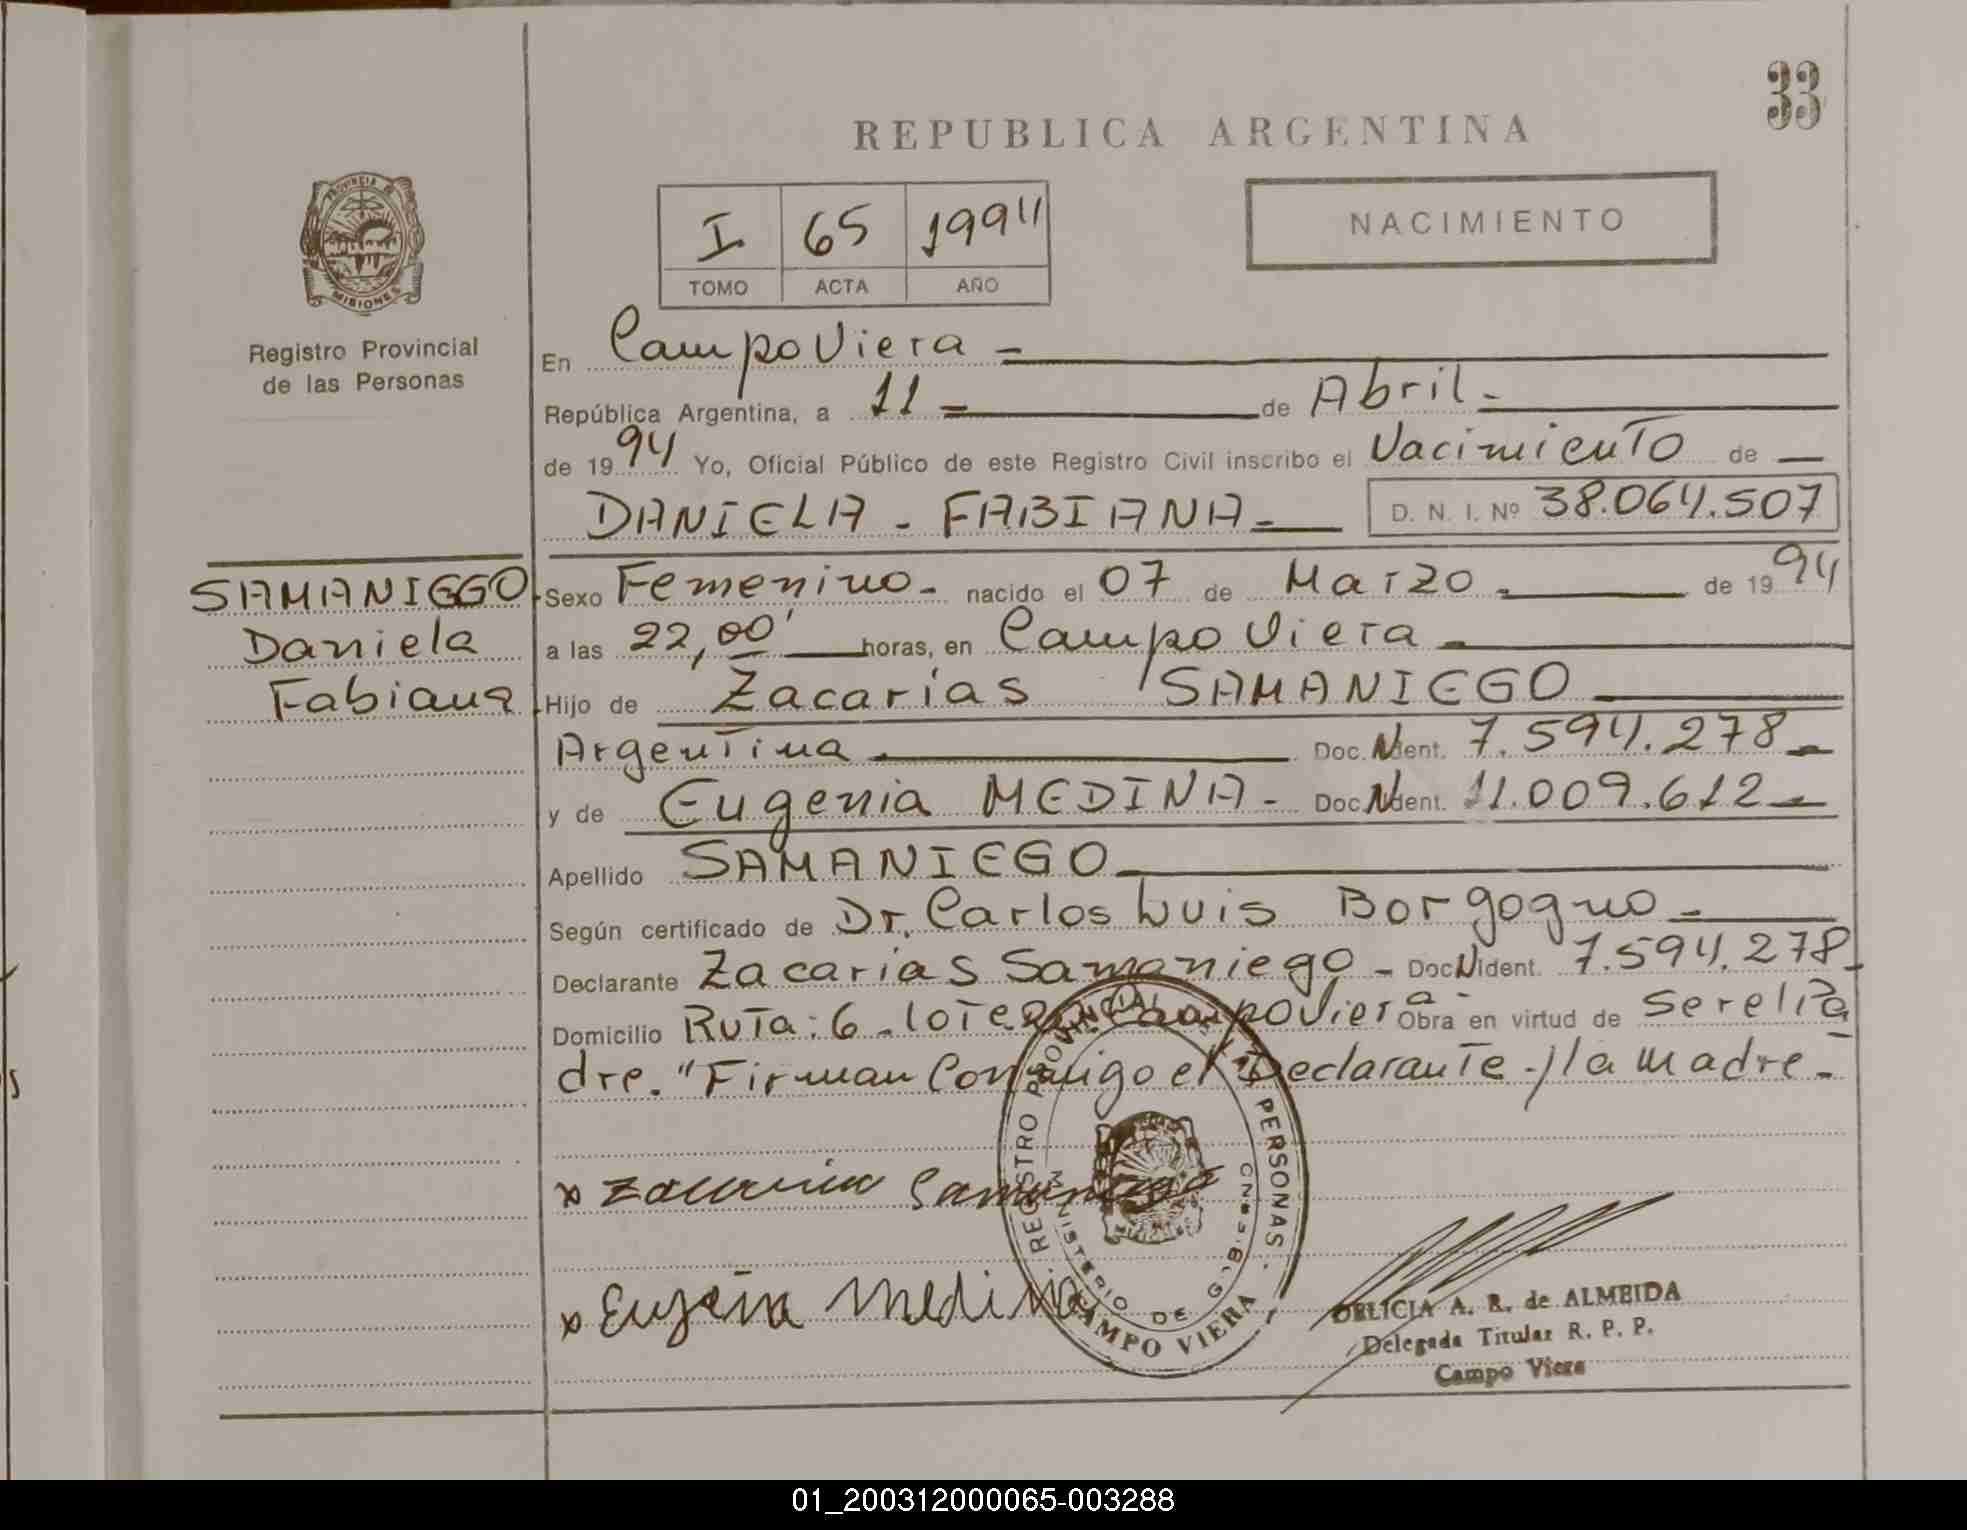 33
REPUBLICA ARGENTINA
NACIMIENTO
I 65 1994
TOMO ACTA AÑO
PROVINCIA DE MISIONES
Registro Provincial
de las Personas
En Campo Viera -
República Argentina, a 11 = de Abril -
de 1994 Yo, Oficial Público de este Registro Civil inscribo el Nacimiento de
DANIELA - FABIANA - D. N. I. Nº 38.064.507
SAMANIEGO
Daniela
Fabiana
Sexo Femenino - nacido el 07 de Marzo - de 1994
a las 22,00' horas, en Campo Viera -
Hijo de Zacarías SAMANIEGO
Argentina - Doc. N Ident. 7.594.278 -
y de Eugenia MEDINA - Doc. N Ident. 11.009.612 -
Apellido SAMANIEGO -
Según certificado de Dr. Carlos Luis Borgogno -
Declarante Zacarías Samaniego - Doc N Ident. 7.594.278 -
Domicilio Ruta: 6 - lote Campo Viera - Obra en virtud de Ser el Pa
dre. "Firman Conmigo el Declarante -/ la madre -
x Zacarias Samaniego
x Eugenia Medina
REGISTRO PROVINCIAL DE LAS PERSONAS
MINISTERIO DE GOB.
CAMPO VIERA
DELICIA A. R. de ALMEIDA
Delegada Titular R. P. P.
Campo Viera
01_200312000065-003288